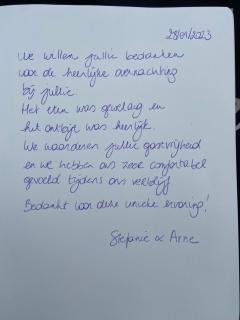 28/01/2023
We willen jullie bedanken
voor de heerlijke overnachting
bij jullie.
Het eten was geweldig en
het ontbijt was heerlijk.
We waarderen jullie gastvrijheid
en we hebben ons zeer comfortabel
gevoeld tijdens ons verblijf
Bedankt voor deze unieke ervaring!
Stefanie & Arne